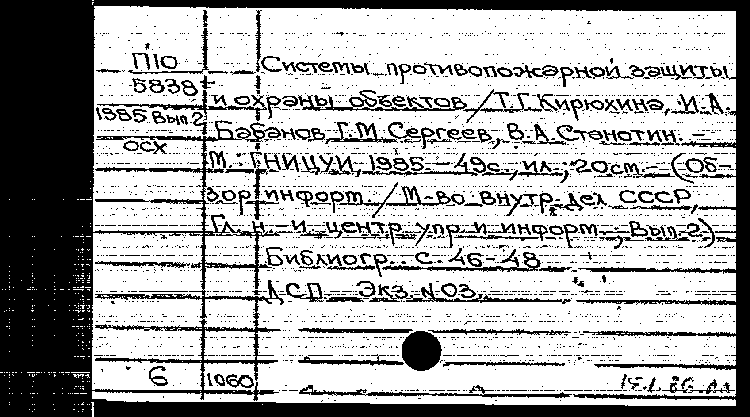 П10
5838
1985 Вып.2
ОСХ
Системы противопожарной защиты
и охраны объектов / Т.Г. Кирюхина, И.А.
Бабанов, Г.М. Сергеев, В.А. Статотин. –
М.: ГНИЦУИ, 1985. – 49с., ил.; 20см. – (Об-
зор информ. / М-во внутр. дел СССР,
Гл. н.-и центр упр и информ.; Вып. 2)
Библиогр. с. 46-48
ДСП Экз. N03.
6 1060 15.1.86